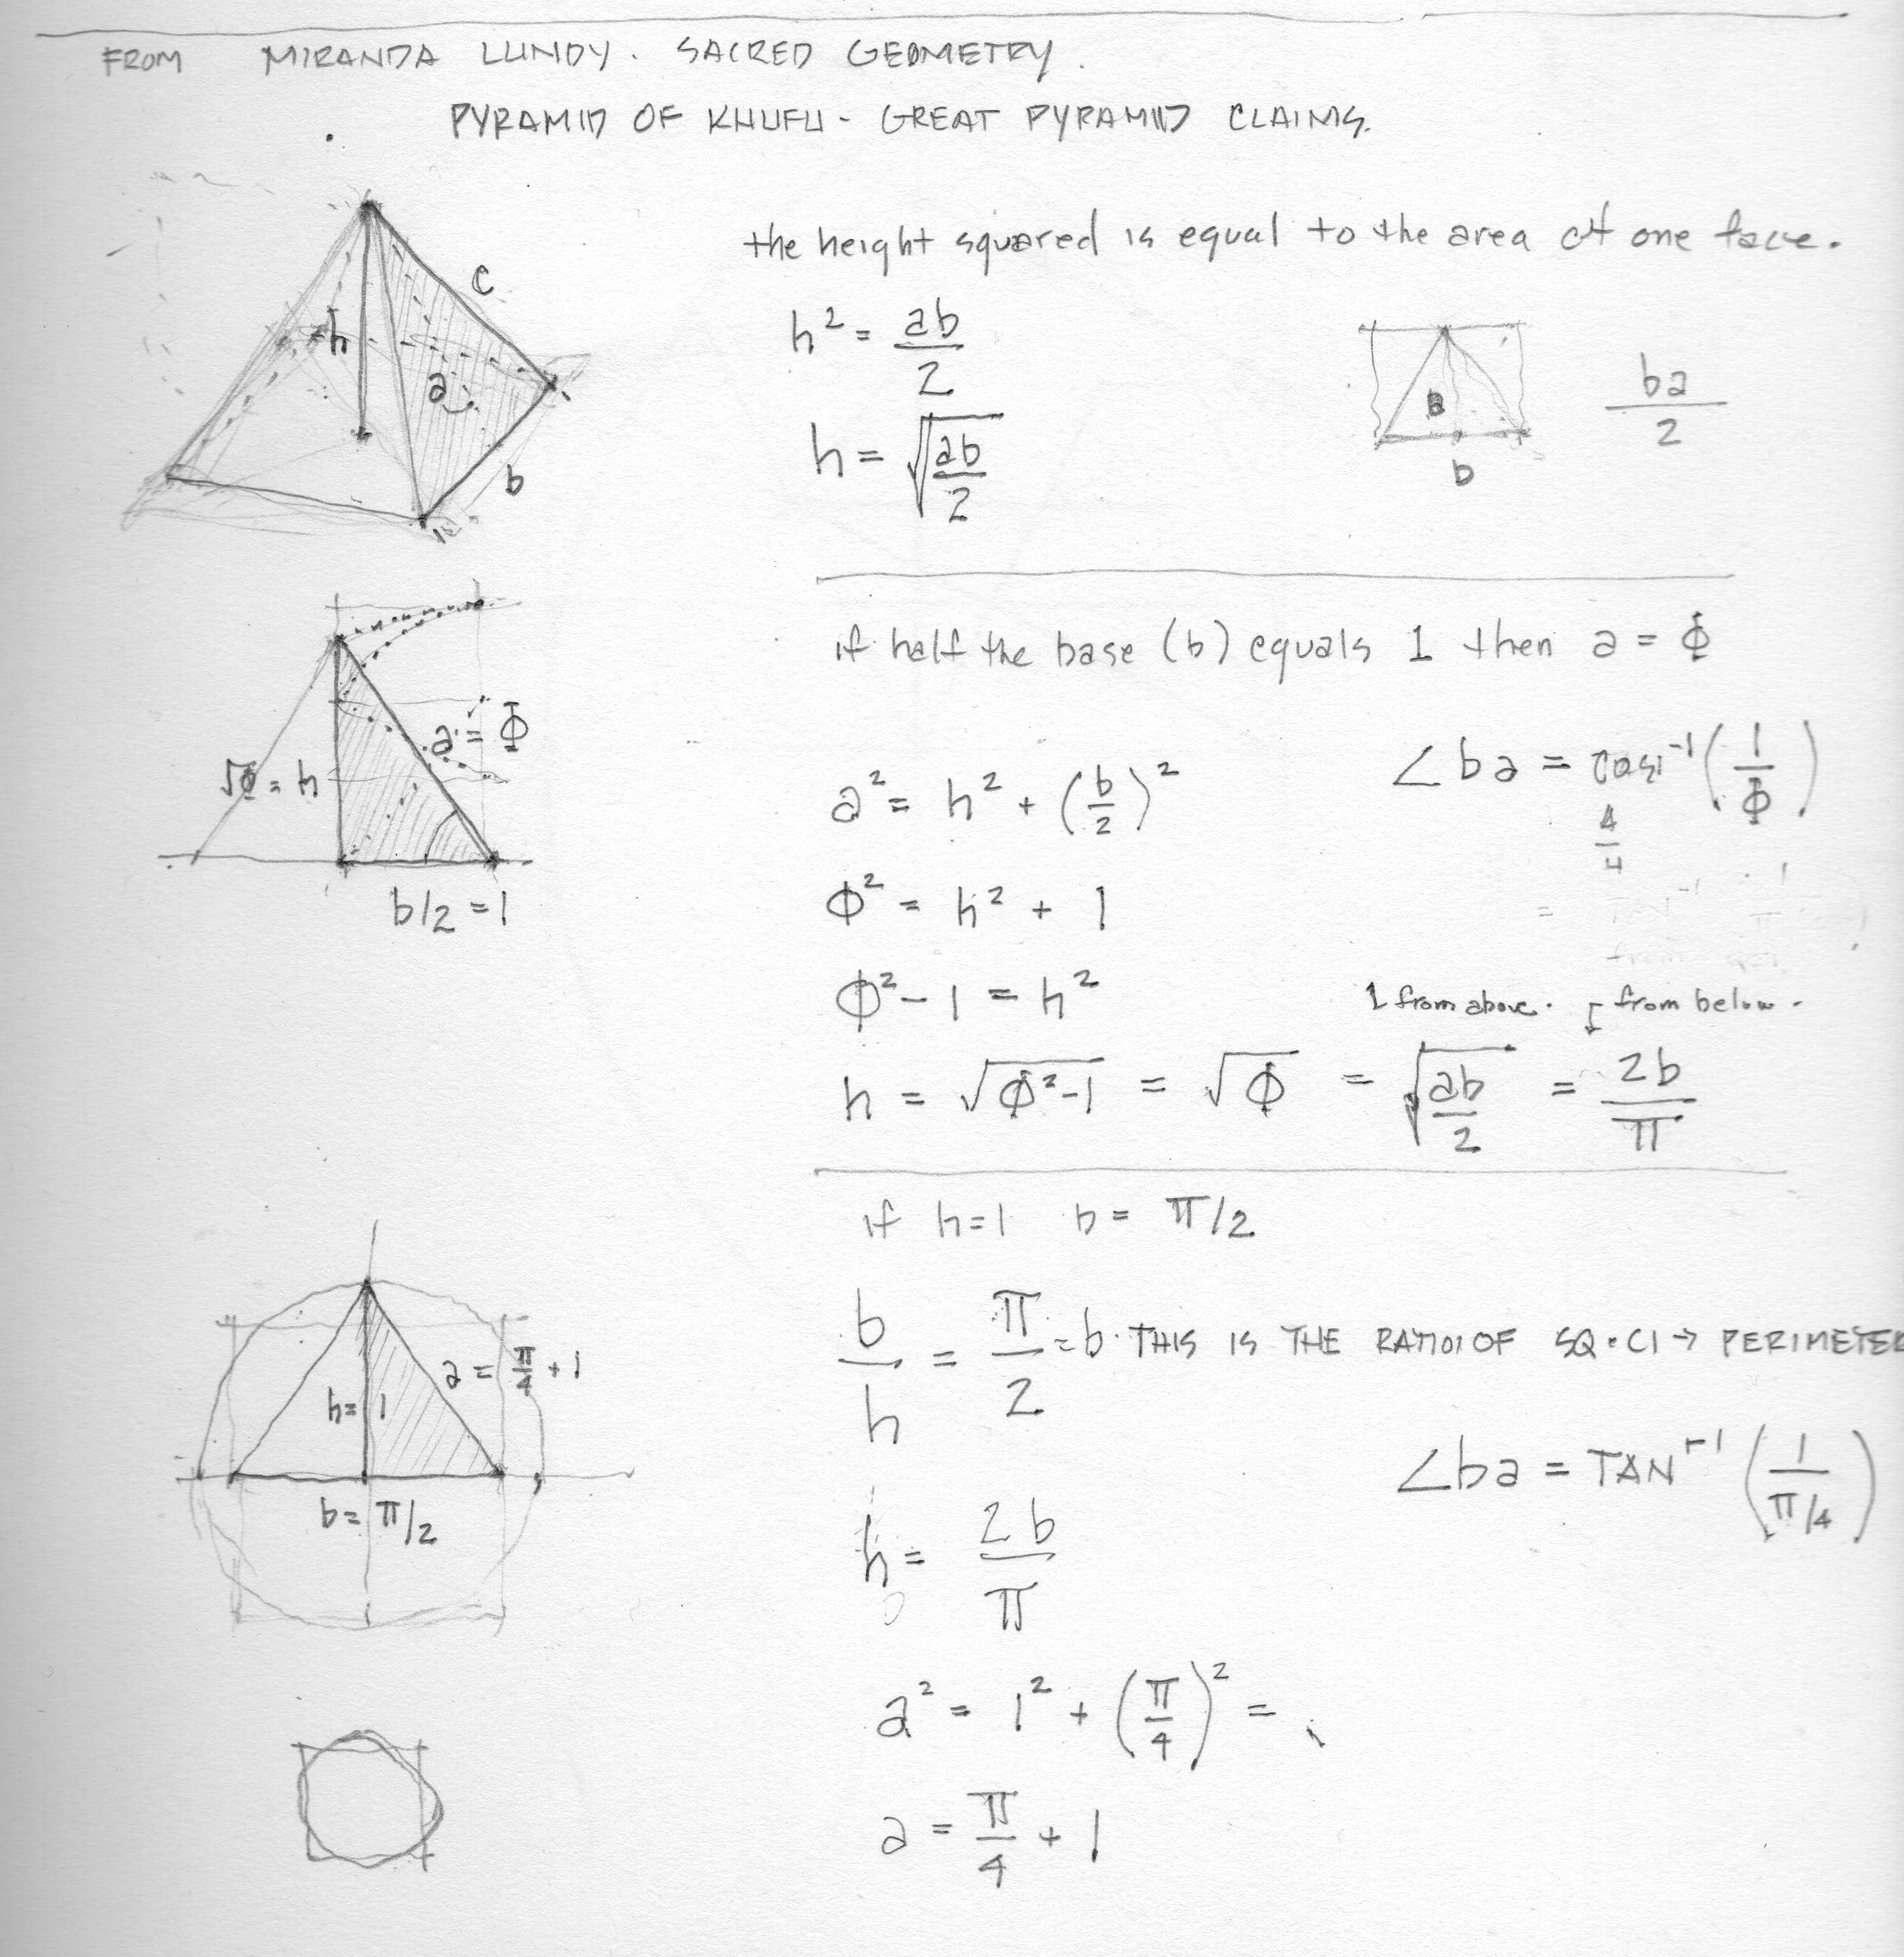 FROM MIRANDA LUNDY. SACRED GEOMETRY.
PYRAMID OF KHUFU - GREAT PYRAMID CLAIMS.
the height squared is equal to the area of one face.
c
h
a
b
h² = ab/2
h = √(ab/2)
a
b
ba/2
if half the base (b) equals 1 then a = Φ
a = Φ
√Φ = h
b/2 = 1
a² = h² + (b/2)²
∠ba = cos⁻¹(1/Φ)
4/4
Φ² = h² + 1
Φ² - 1 = h²
1 from above. ↓ from below.
h = √(Φ²-1) = √Φ = √(ab/2) = 2b/π
if h=1 b = π/2
b/h = π/2 = b. THIS IS THE RATIO OF SQ. CI → PERIMETER
a = π/4 + 1
h = 1
b = π/2
∠ba = TAN⁻¹(1/(π/4))
h = 2b/π
a² = 1² + (π/4)² =
a = π/4 + 1